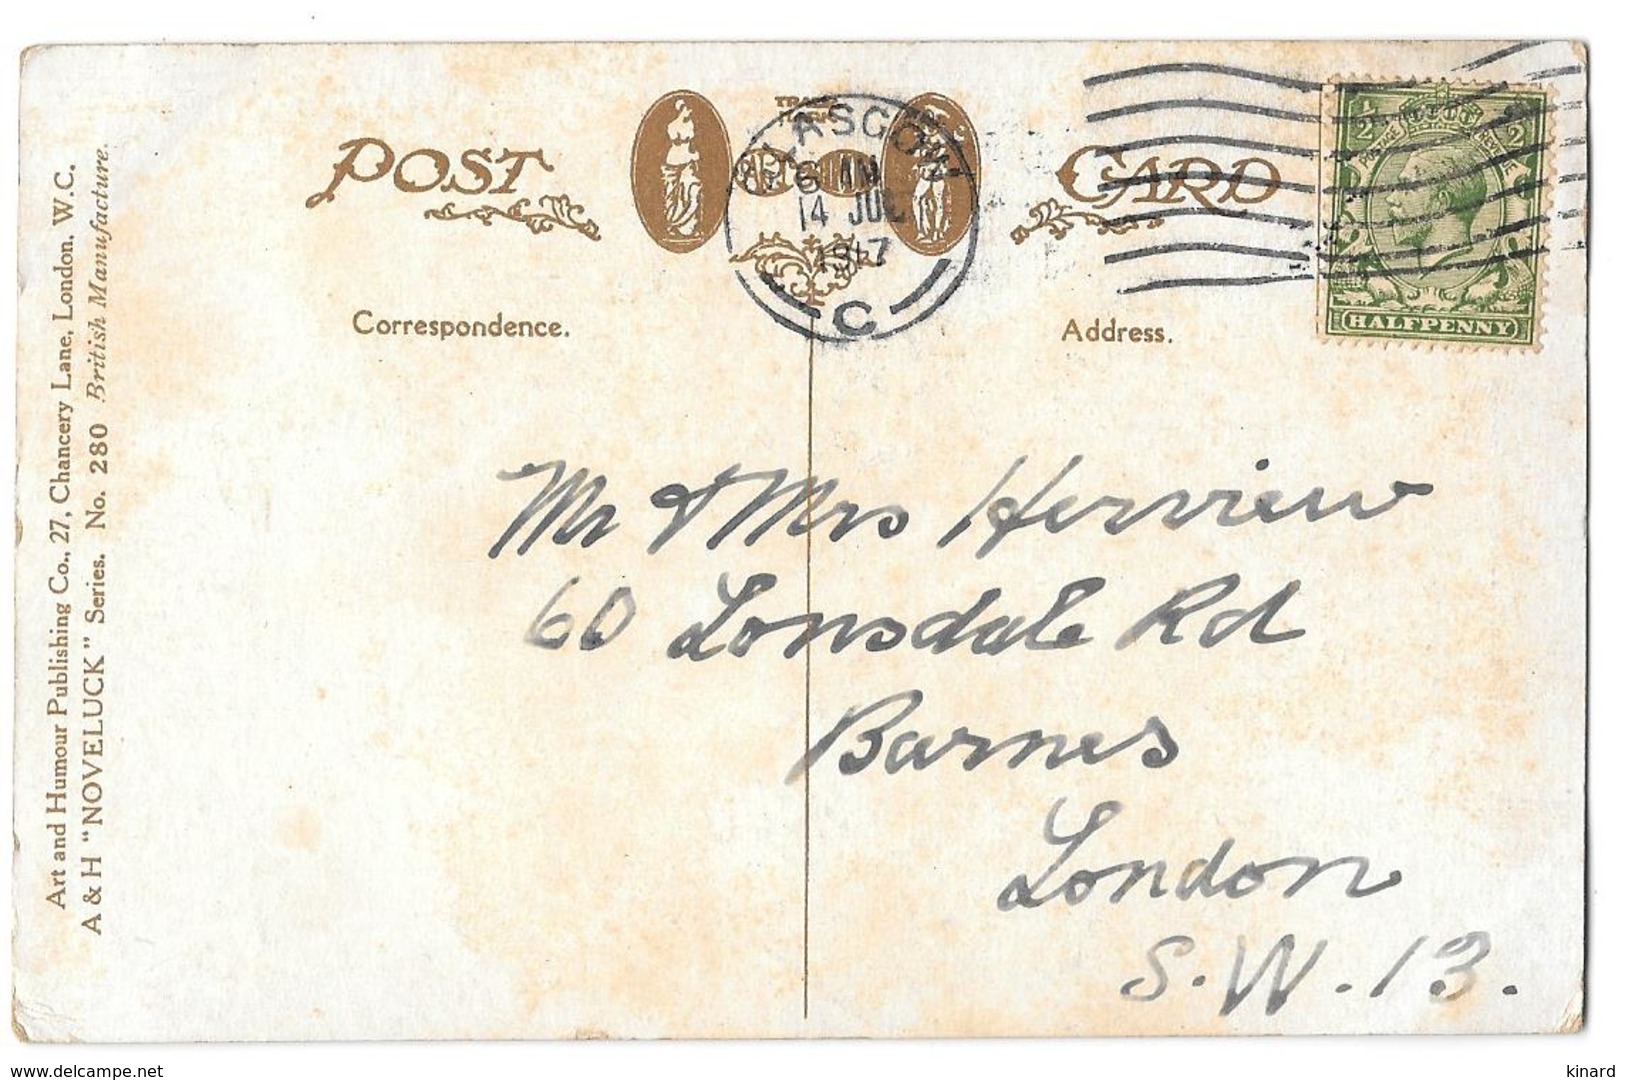 POST CARD
TRADE MARK
ART & HUMOUR
GLASGOW
6 AM
14 JUL
C
½ POSTAGE REVENUE ½
HALFPENNY
Correspondence.
Address.
Mr & Mrs Herview
60 Lonsdale Rd
Barnes
London
S.W.13.
Art and Humour Publishing Co., 27, Chancery Lane, London, W.C.
A & H "NOVELUCK" Series. No. 280 British Manufacture.
kinard